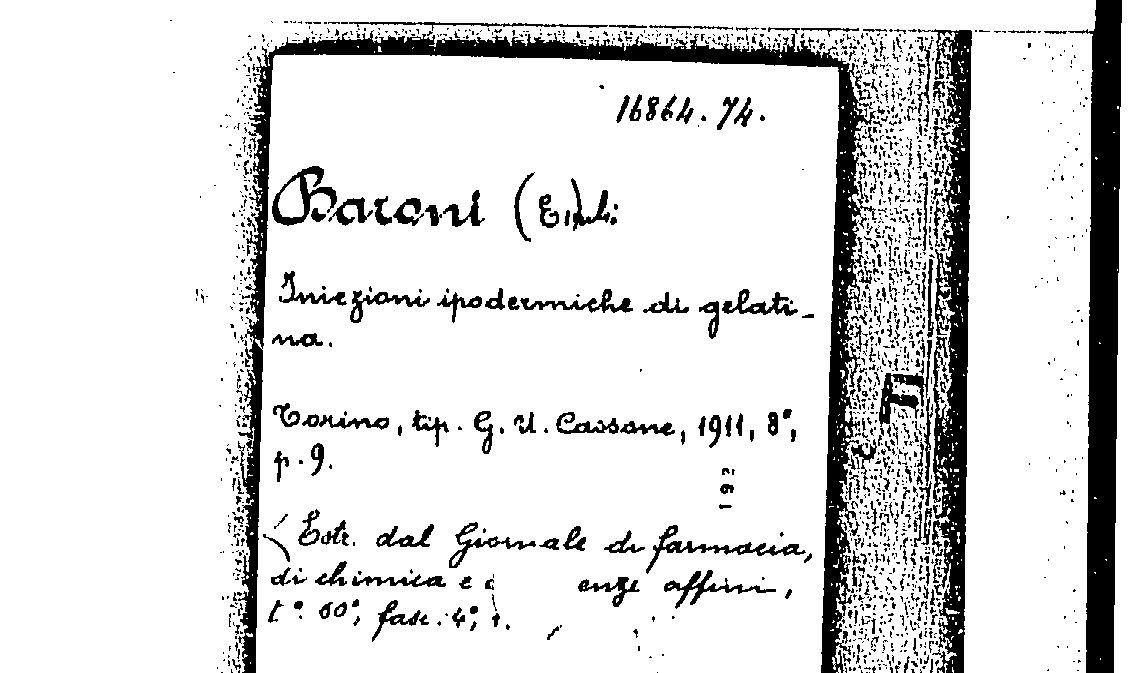 16864.74.
Baroni
Iniezioni ipodermiche di gelati-
na.
Torino, tip. G. U. Cassone, 1911, 8°,
p. 9.
Estr. dal Giornale di farmacia,
di chimica e affini,
t°. 60°, fasc. 4°,